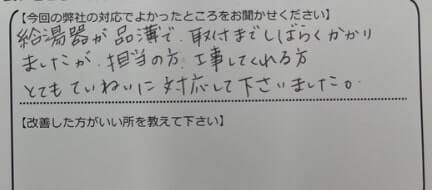 【今回の弊社の対応でよかったところをお聞かせください】
給湯器が品薄で、取付までしばらくかかり
ましたが、担当の方、工事してくれる方
とてもていねいに対応して下さいました。
【改善した方がいい所を教えて下さい】